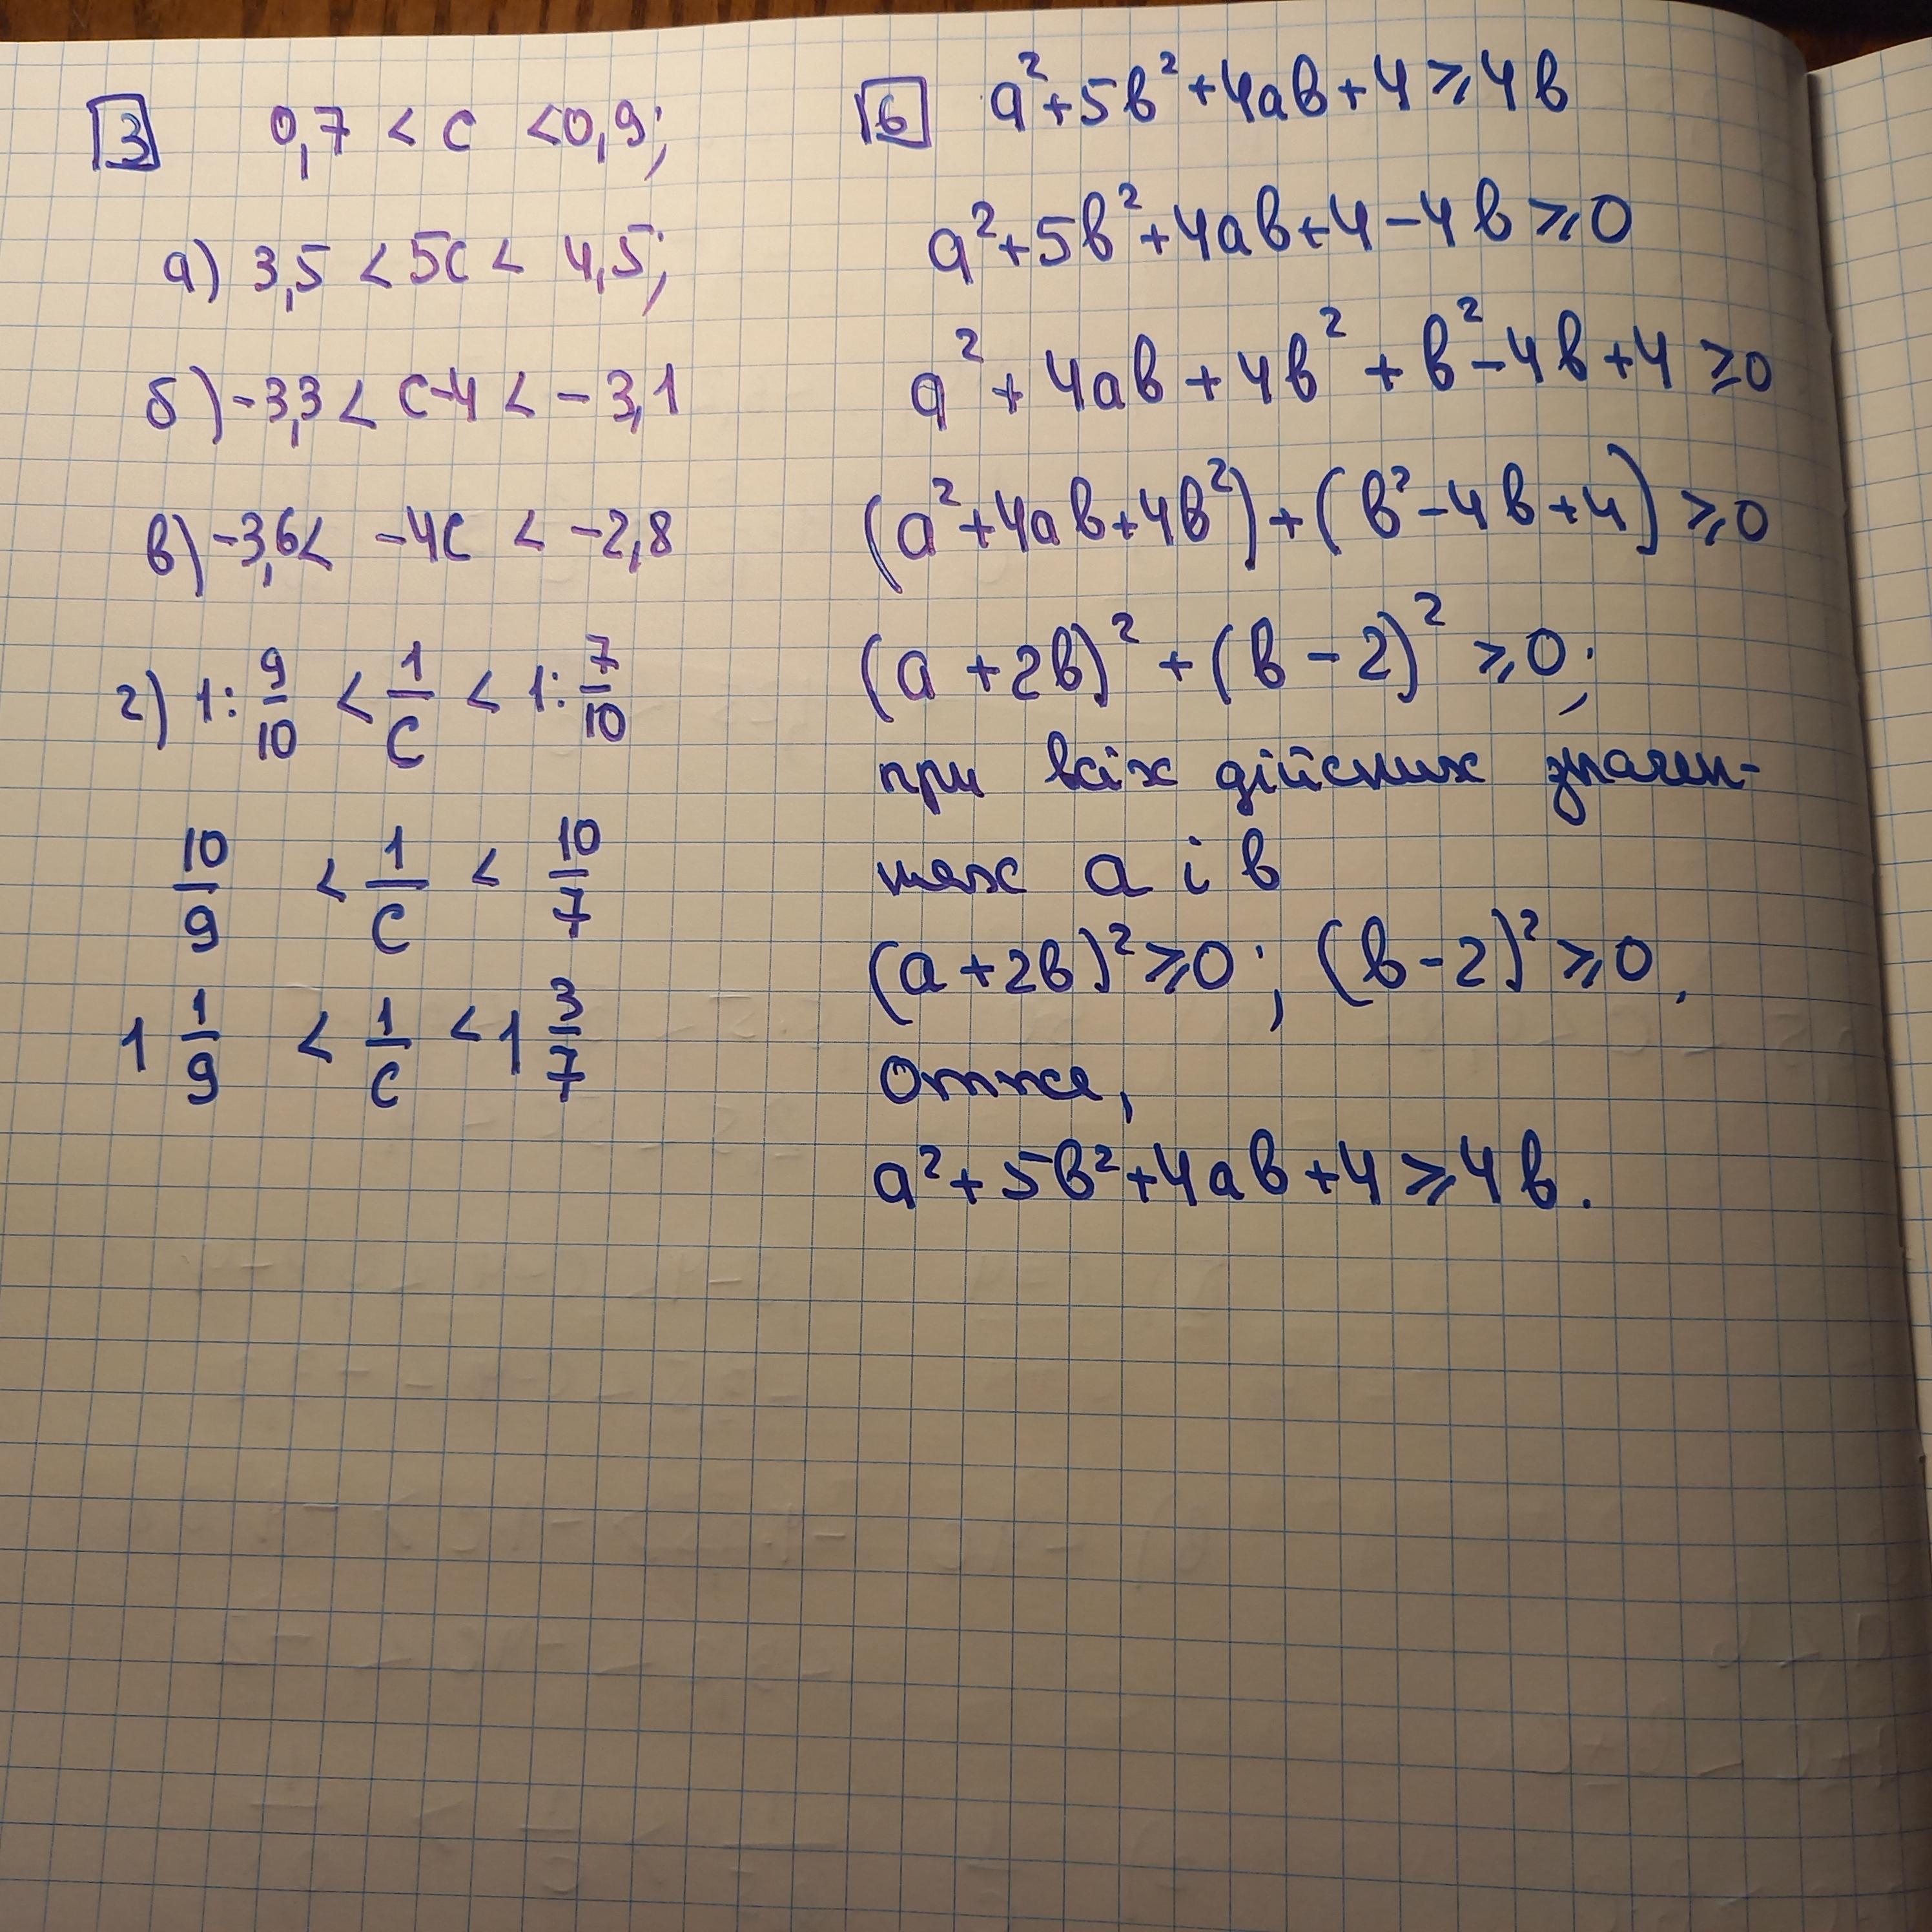 3 0,7 < c < 0,9;
а) 3,5 < 5c < 4,5;
б) -3,3 < c-4 < -3,1
в) -3,6 < -4c < -2,8
г) 1: 9/10 < 1/c < 1: 7/10
10/9 < 1/c < 10/7
1 1/9 < 1/c < 1 3/7
6 a²+5b²+4ab+4⩾4b
a²+5b²+4ab+4-4b⩾0
a²+4ab+4b²+b²-4b+4⩾0
(a²+4ab+4b²)+(b²-4b+4)⩾0
(a+2b)²+(b-2)²⩾0;
при всіх дійсних значен-
нях a і b
(a+2b)²⩾0; (b-2)²⩾0,
Отже,
a²+5b²+4ab+4⩾4b.